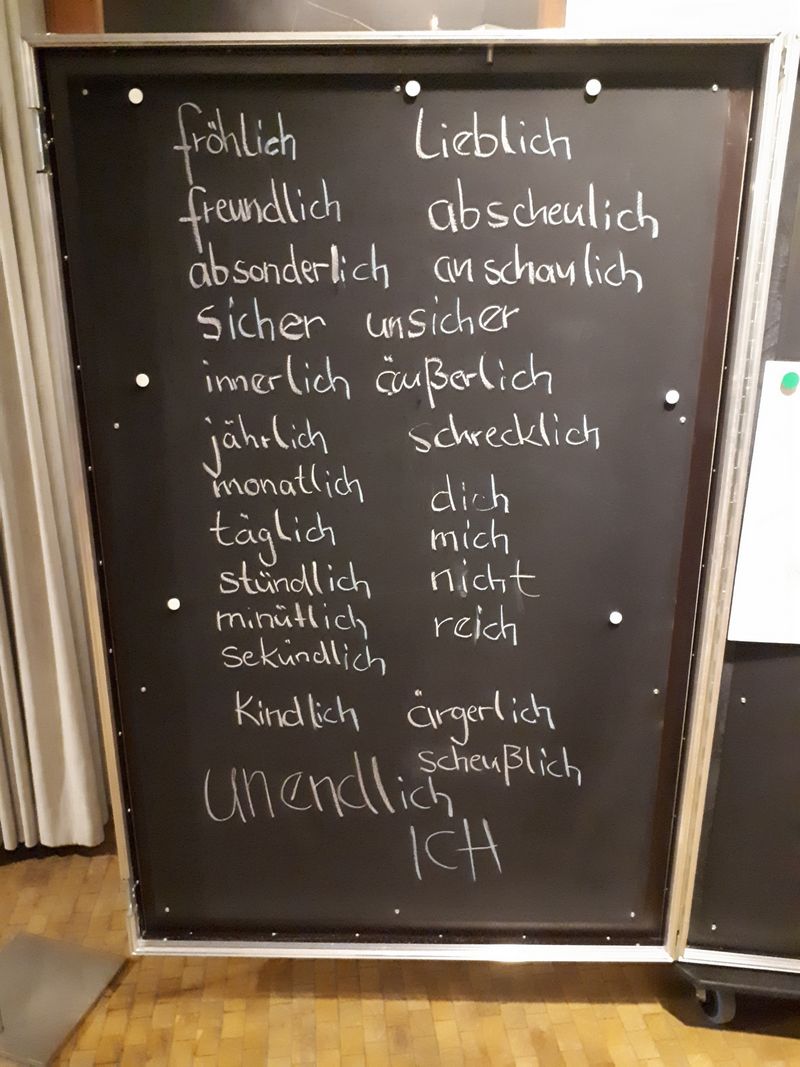 fröhlich lieblich
freundlich abscheulich
absonderlich anschaulich
sicher unsicher
innerlich äußerlich
jährlich schrecklich
monatlich dich
täglich mich
stündlich nicht
minütlich reich
sekündlich
kindlich ärgerlich
scheußlich
unendlich
ICH